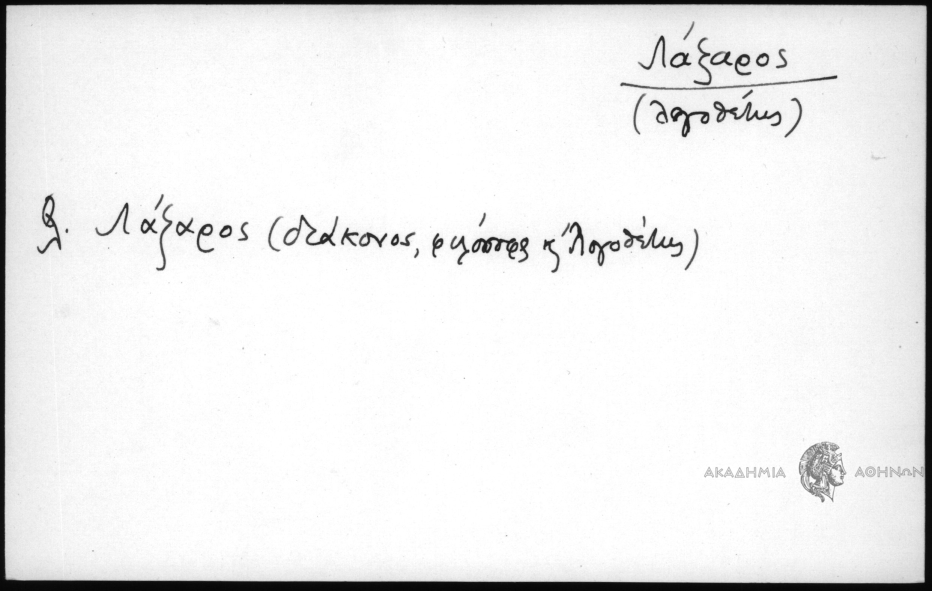 Λάζαρος
(λογοθέτης)
βλ. Λάζαρος (διάκονος, φιλόσοφος κ' λογοθέτης)
ΑΚΑΔΗΜΙΑ ΑΘΗΝΩΝ